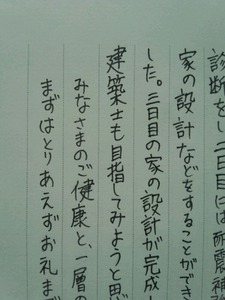 診断をし、二日目には耐震補
家の設計などをすることができ
した。三日目の家の設計が完成
建築士も目指してみようと思
みなさまのご健康と、一層の
まずはとりあえずお礼まで